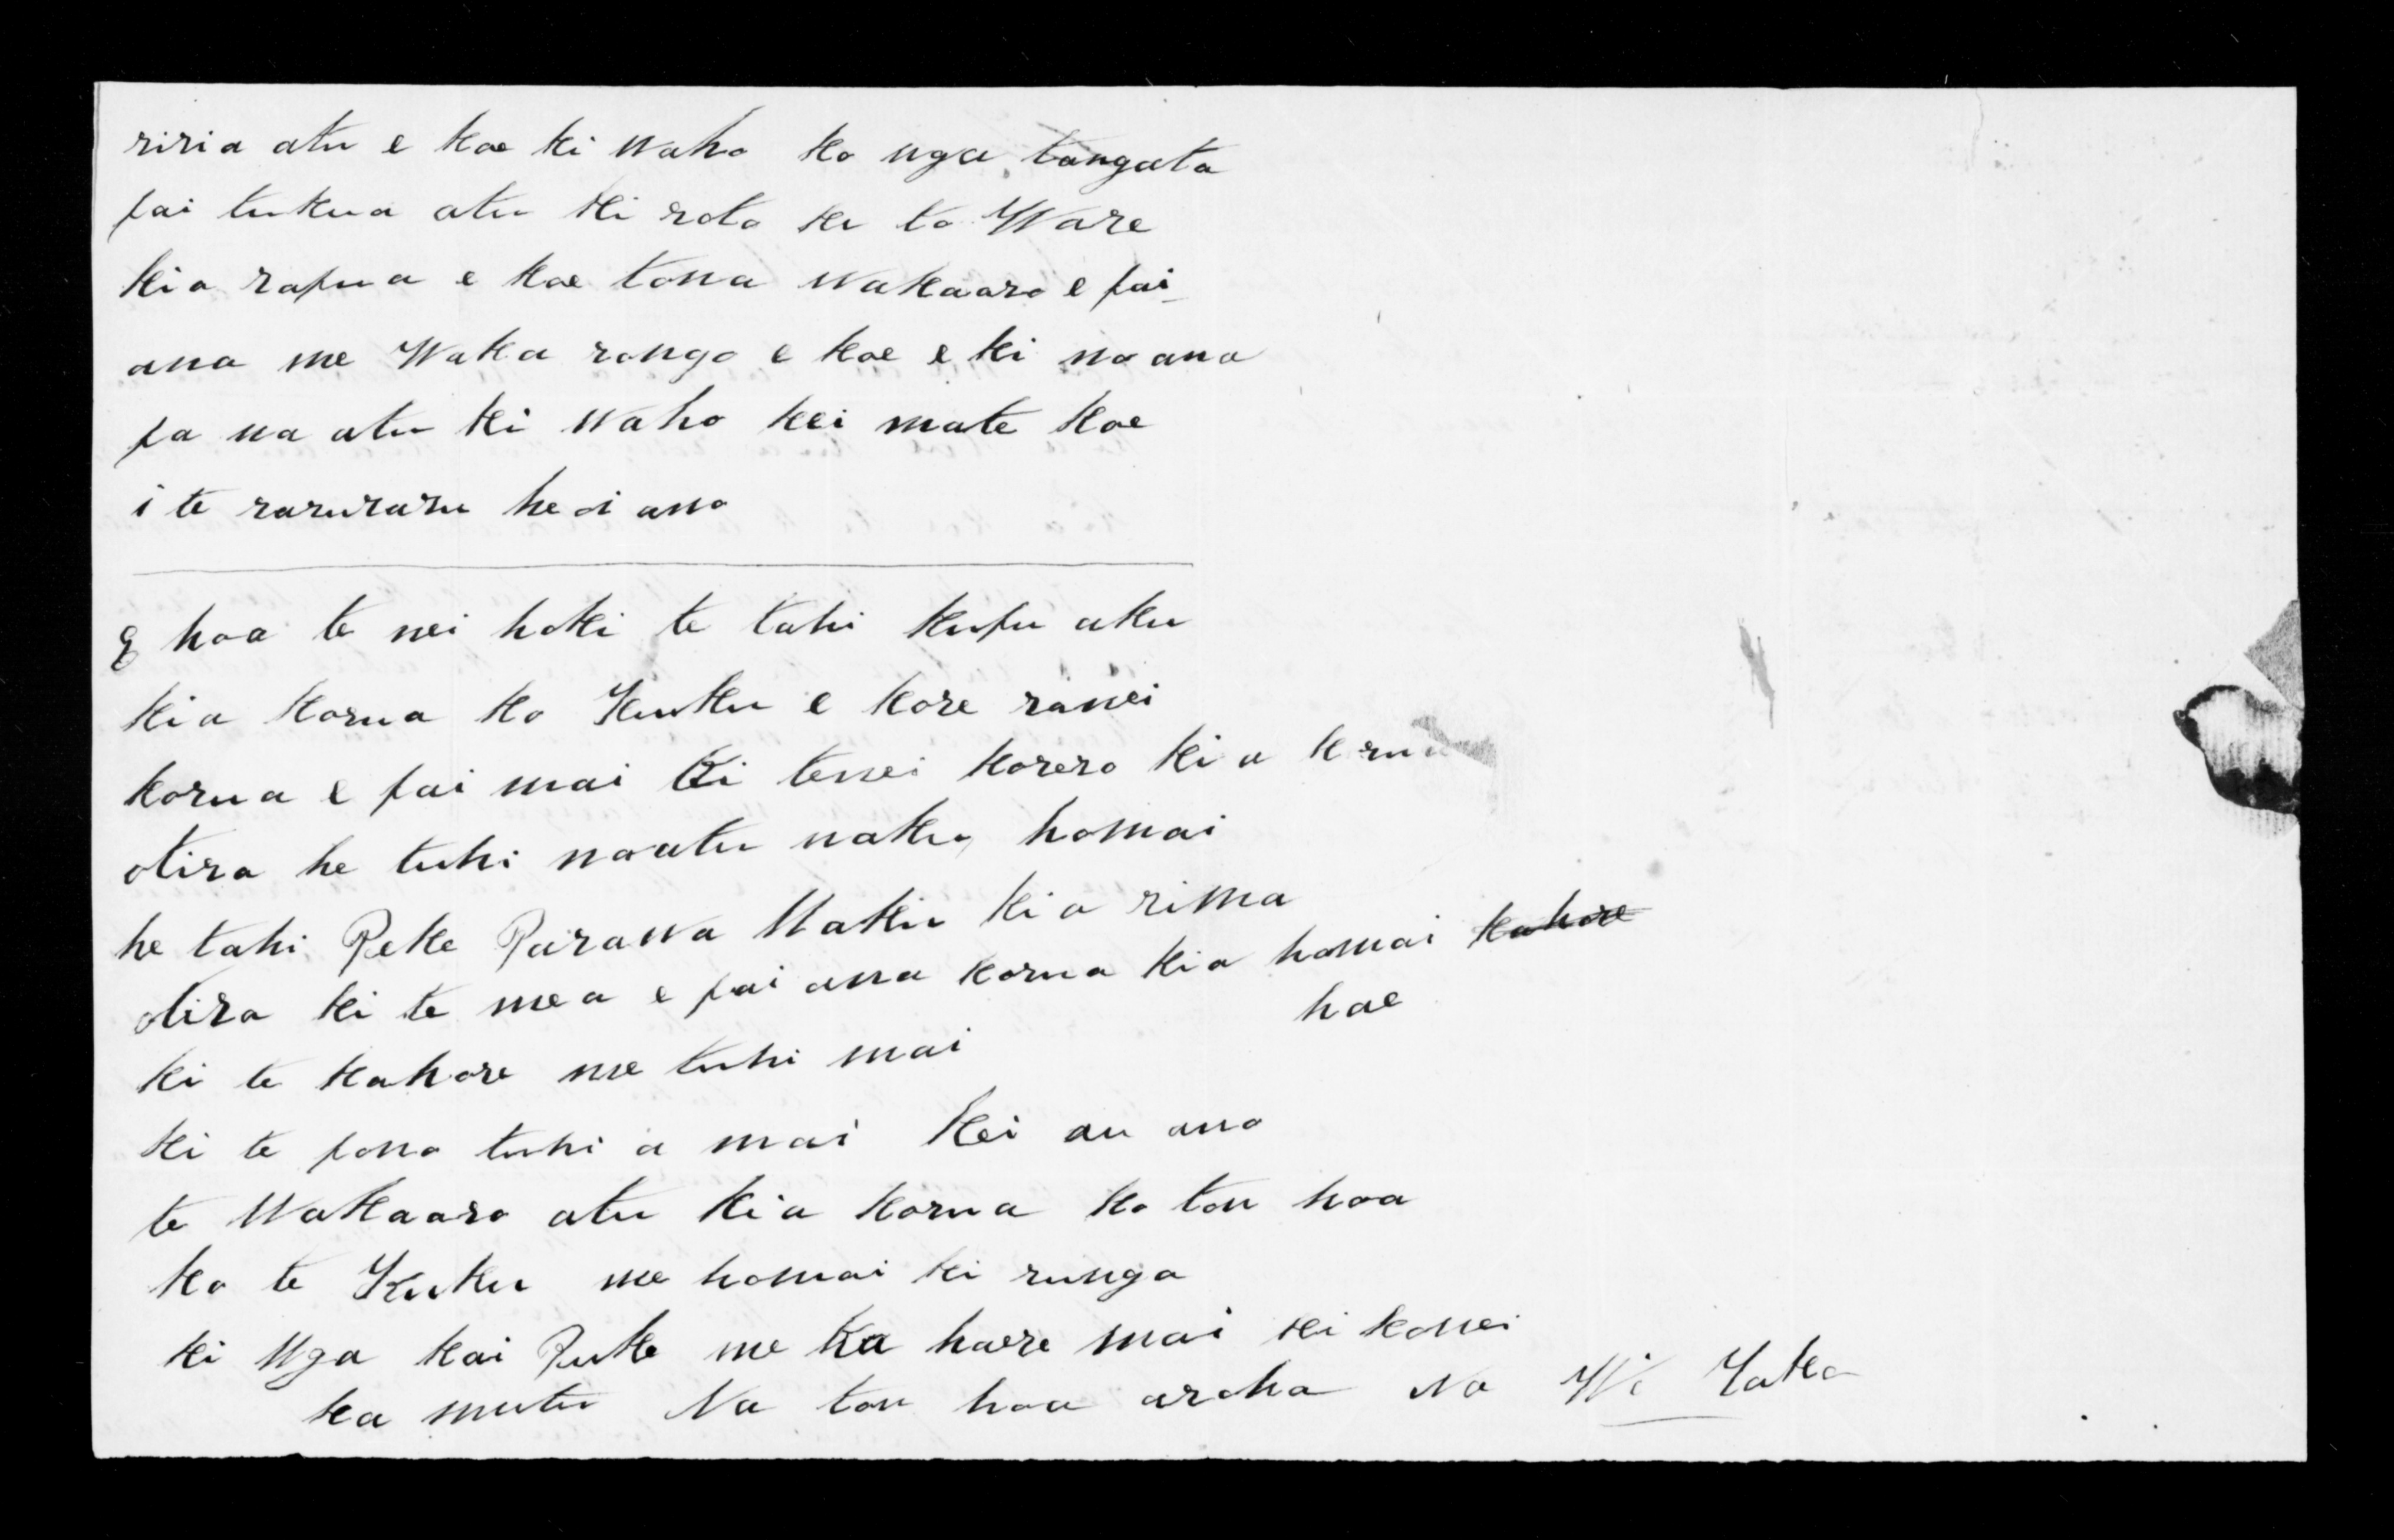 riria atu e koe ki waho ko nga tangata
pai tukua atu ki roto ki to Ware
kia rapua e koe tona wakaaro e pai
ana me Waka rongo e koe e ki no ana
pa na atu ki waho kei mate koe
i te raruraru heoi ano
E hoa te nei hoki te tahi kupu aku
kia korua ko Kuku e kore ranei
korua e pai mai ki tenei korero kia korua
otira he tuhi noatu naku homai
he tahi Peke Parawa Maku kia rima
otira ki te mea e pai ana korua kia homai kahore
hae
ki te kahore me tuhi mai
ki te pono tuhi a mai kei au ano
te Wakaaro atu kia korua ko tou hoa
ko te Kuku me homai ki runga
ki Nga kai Puke me ka haere mai ki konei
ka mutu Na tou hoa aroha Na Wi Tako